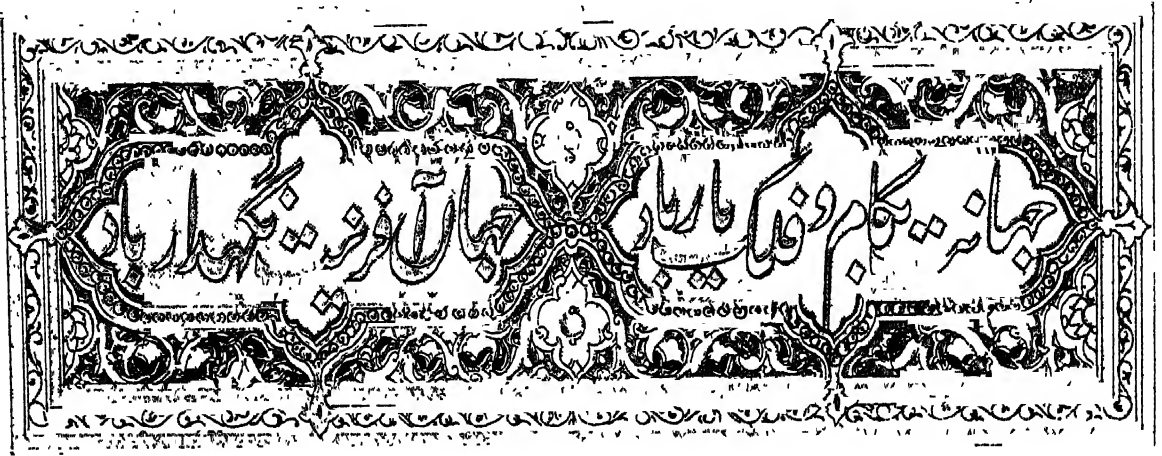 جهانت بکام و فلک یار باد
جهان آفرینت نگهدار باد